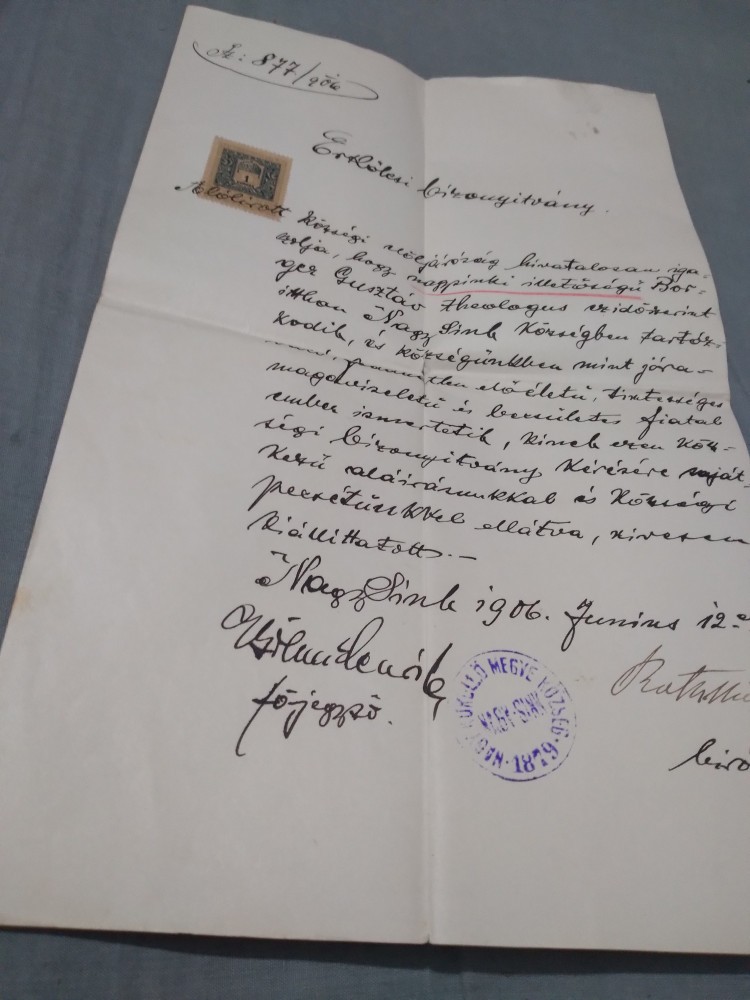 Sz: 877/906
1
Erkölcsi bizonyitvány.
Alólirott Községi elöljáróság hivatalosan iga-
zolja, hogy nagysinki illetöségü Bor-
ger Gusztáv theologus ezidöszerint
itthon Nagy Sink Községben tartóz-
kodik, és községünkben mint jóra-
való, elöéletü, tisztességes
magaviseletü és becsületes fiatal
ember ismertetik, kinek ezen köz-
ségi bizonyitvány kérésére saját-
kezü aláirásunkkal és községi
pecsétünkkel ellátva, szivesen
kiállittatott. –
Nagy Sink 1906. Junius 12-
föjegyzö.
NAGY KÜKÜLLÖ MEGYE KÖZSÉG
NAGY-SINK
1879
biró